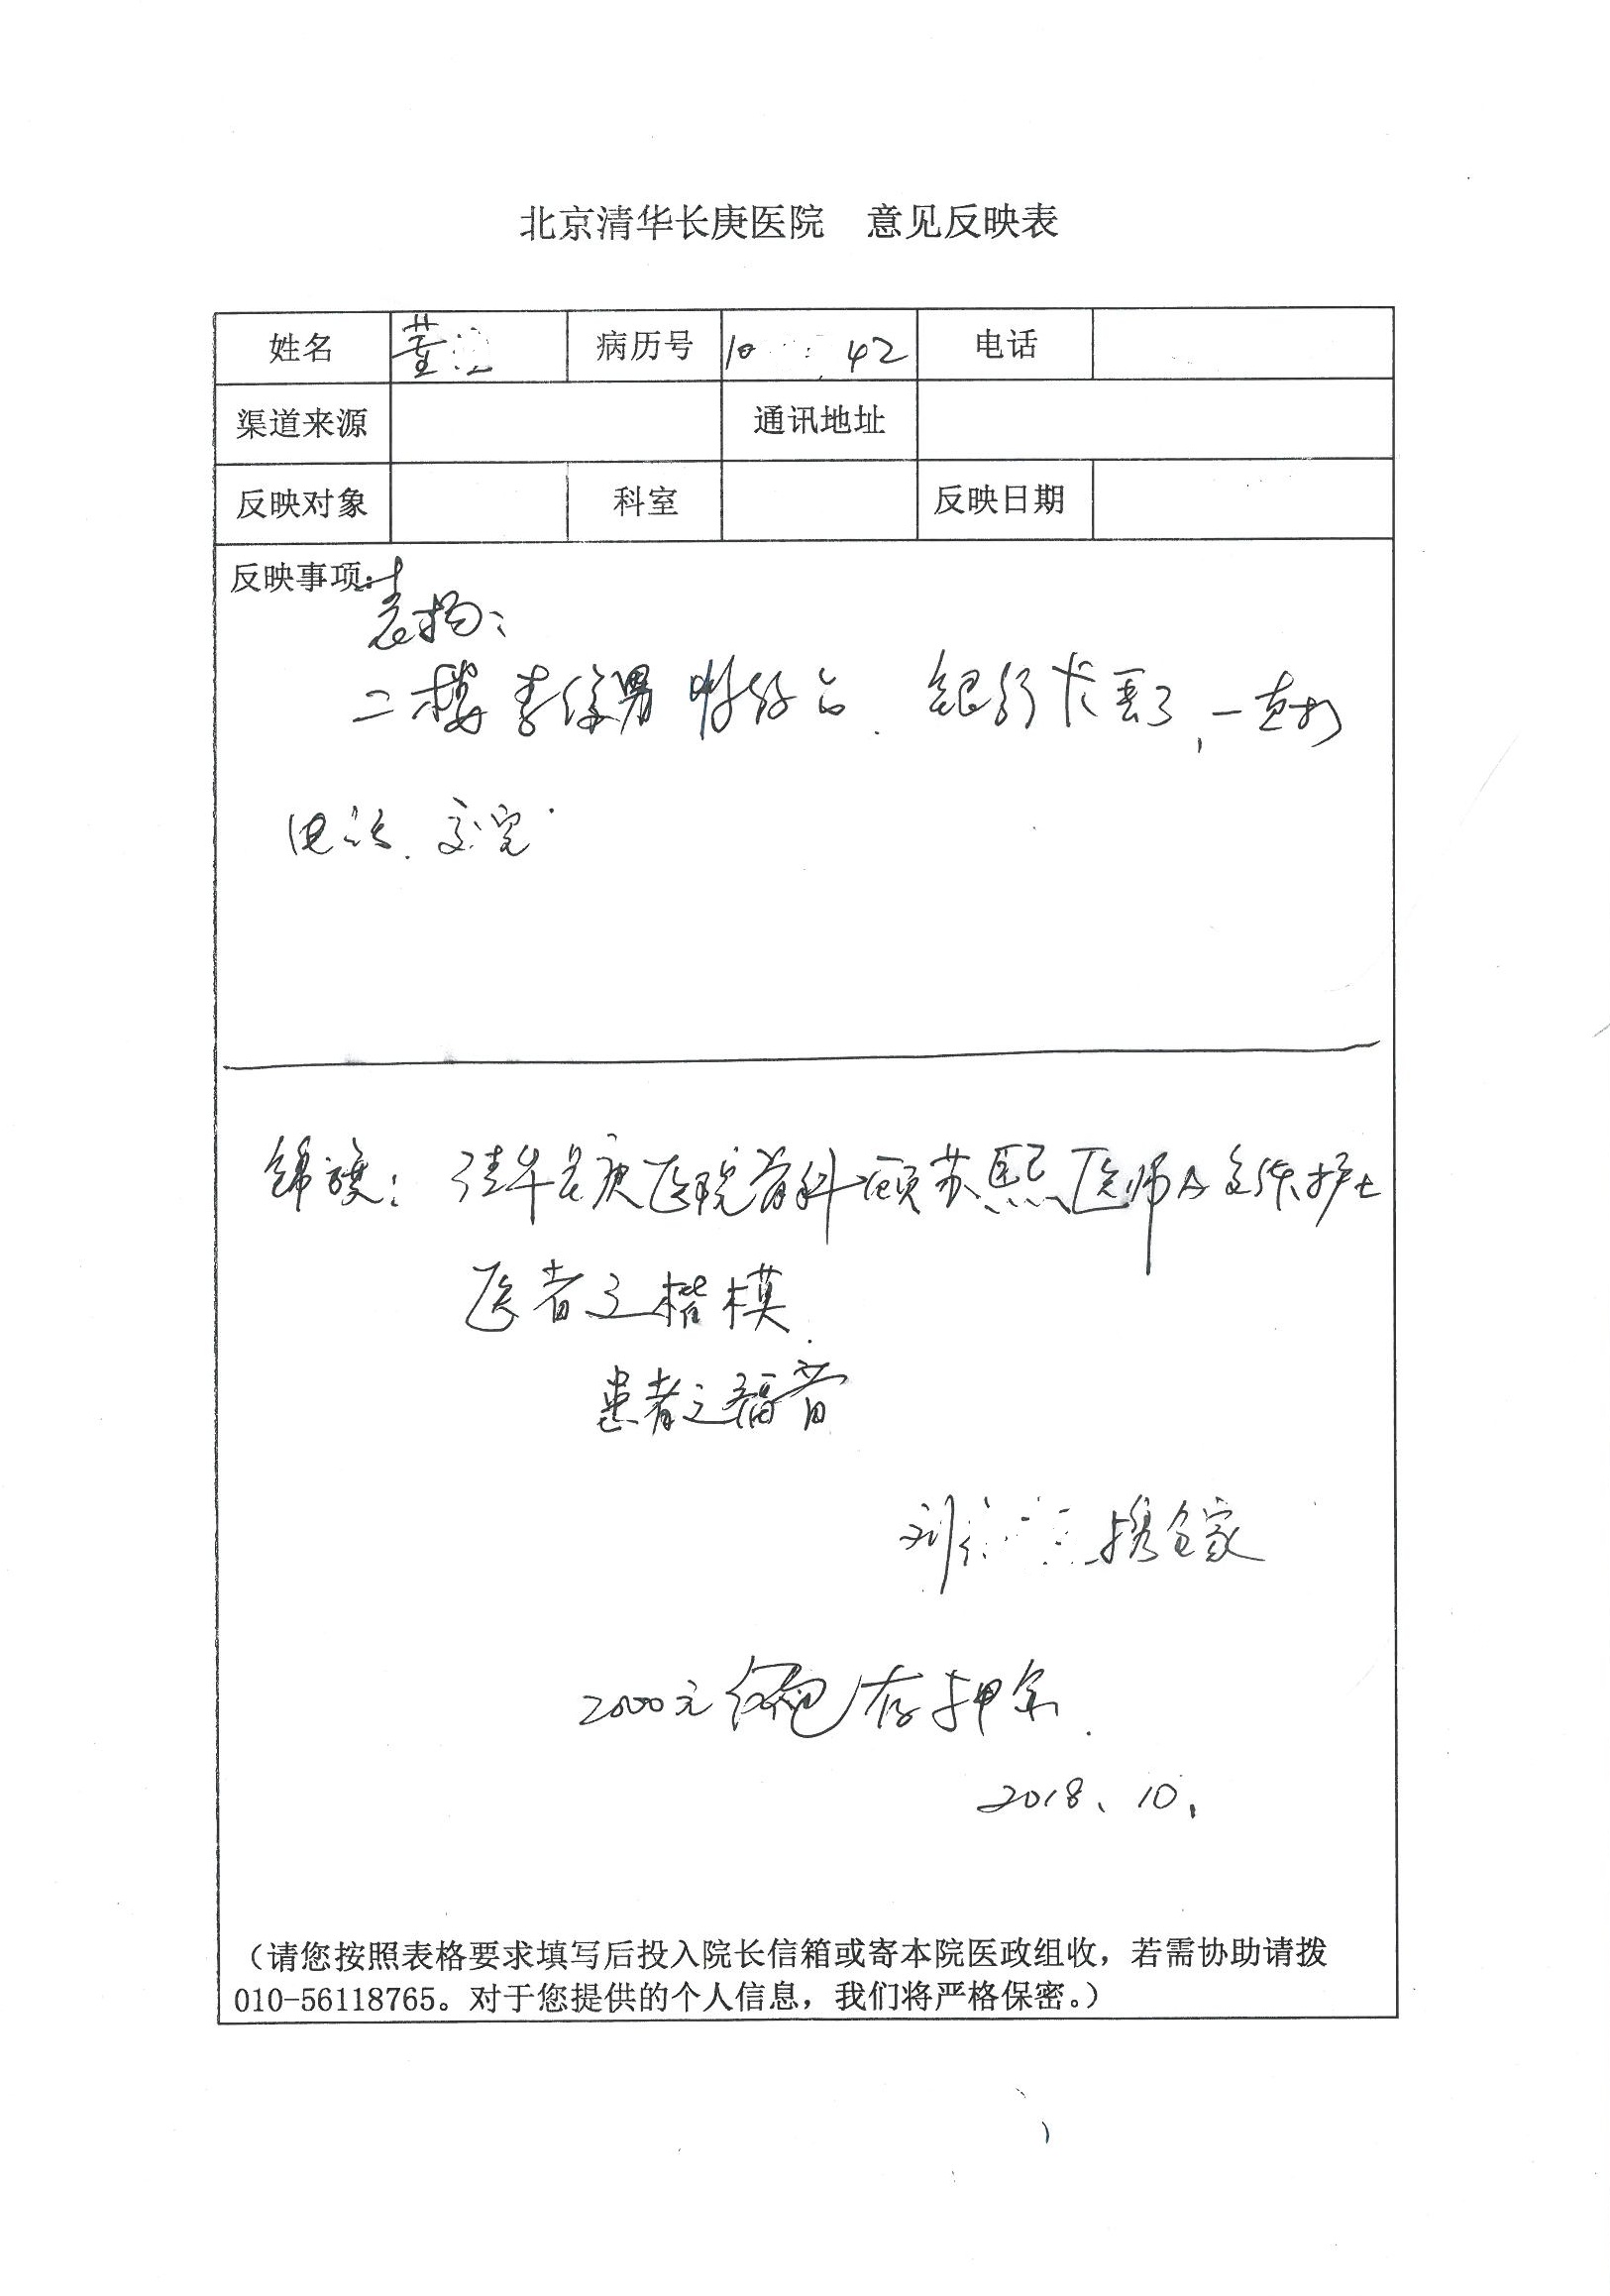 北京清华长庚医院 意见反映表
姓名 董 病历号 10 42 电话
渠道来源 通讯地址
反映对象 科室 反映日期
反映事项:
表扬:
二楼 李 男 银行卡丢了,一直打
电话.
锦旗: 清华长庚医院骨科顾苏熙医师及全体护士
医者之楷模
患者之福音
刘 携全家
2000元红包存押金.
2018、10、
(请您按照表格要求填写后投入院长信箱或寄本院医政组收,若需协助请拨
010-56118765。对于您提供的个人信息,我们将严格保密。)